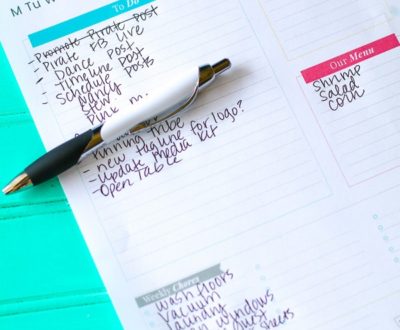 M Tu W
To Do
- Promote Pirate Post
- Pirate FB Live
- Dance Post
- Timeline Post
- Schedule Posts
Nancy
Stew.
Pink
- running tribe
- new tagline for logo?
- Update Media Kit
- Open Table
Our Menu
Shrimp
Salad
Corn
Weekly Chores
wash floors
vacuum
laundry
windows
dust
sheets